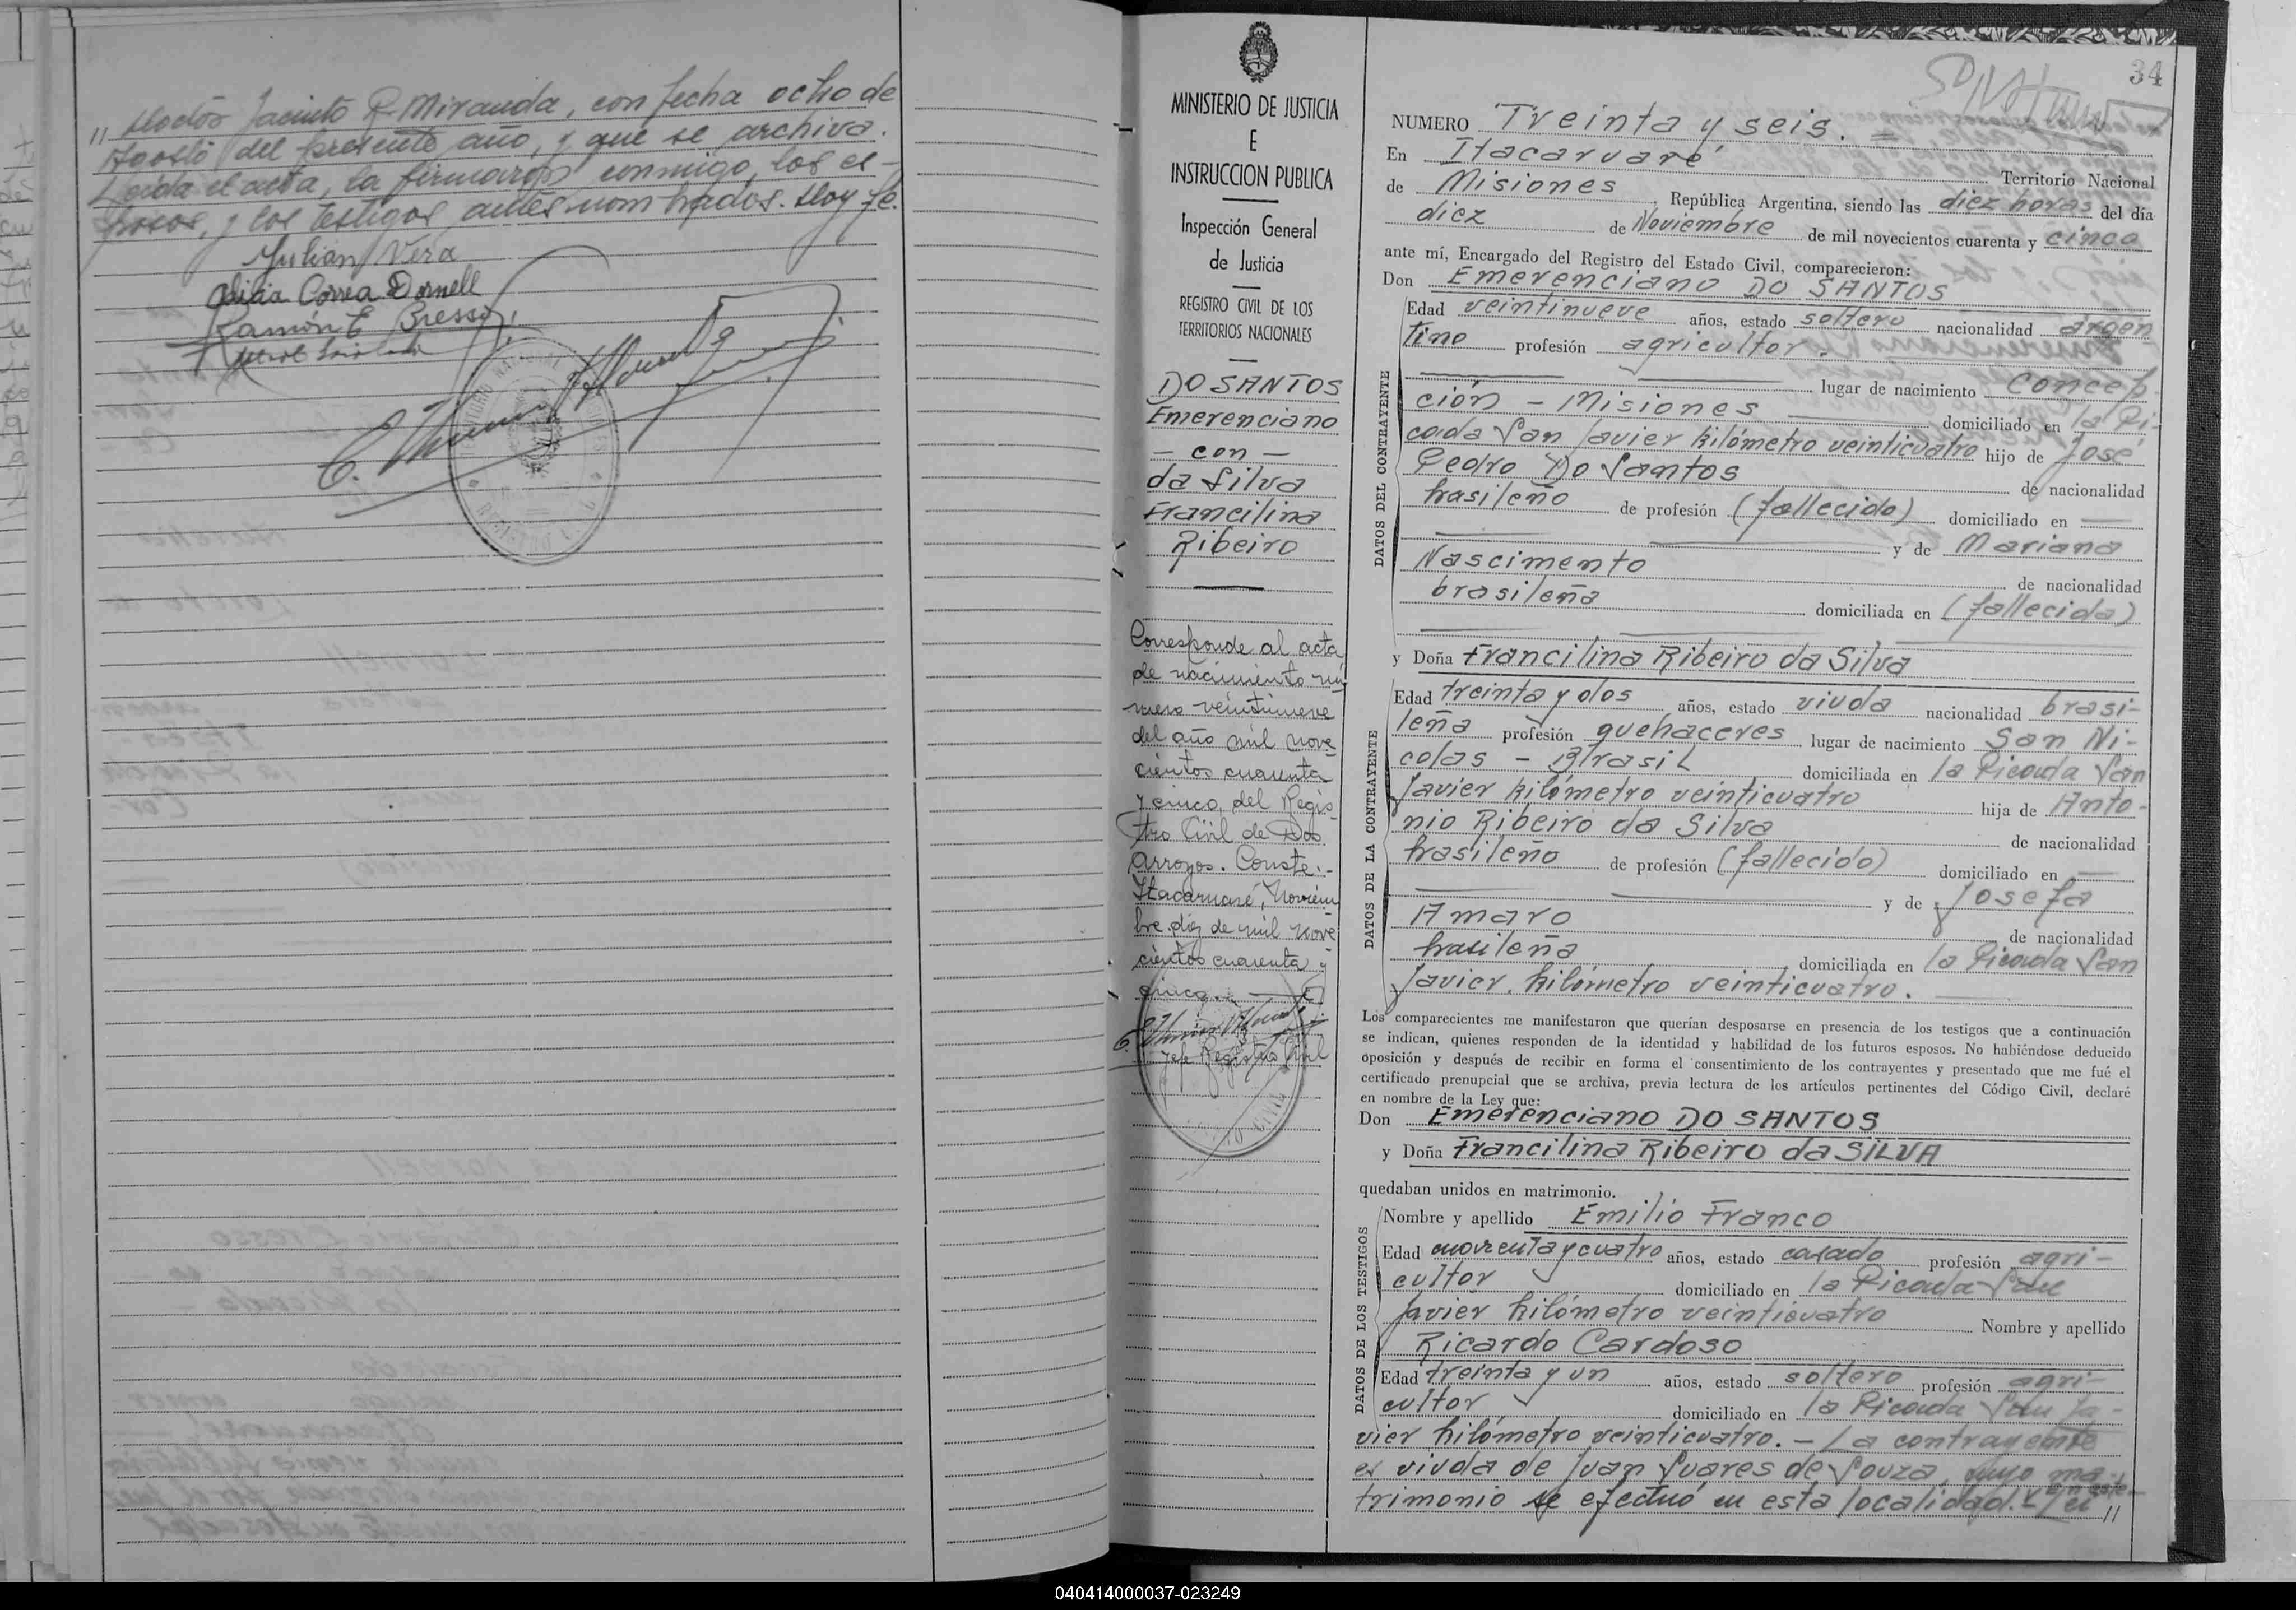 // Doctor Jacinto R. Miranda, con fecha ocho de
Agosto del presente año, y que se archiva.
Leída el acta, la firmaron conmigo, los es-
posos, y los testigos antes nombrados. Doy fe.
Julián Vera
Alicia Correa Dornell
Ramón E. Bresso
MINISTERIO DE JUSTICIA
E
INSTRUCCION PUBLICA
Inspección General
de Justicia
REGISTRO CIVIL DE LOS
TERRITORIOS NACIONALES
DO SANTOS
Emerenciano
— con —
da Silva
Francilina
Ribeiro
Corresponde al acta
de nacimiento nú
mero veintinueve
del año mil nove
cientos cuarenta
y cinco, del Regis-
tro Civil de Dos
Arroyos. Conste:-
Itacaruaré, Noviem
bre diez de mil nove
cientos cuarenta y
cinco.
Jefe Registro Civil
34
NUMERO Treinta y seis. =
En Itacaruaré
Territorio Nacional
de Misiones, República Argentina, siendo las diez horas del día
diez de Noviembre de mil novecientos cuarenta y cinco
ante mí, Encargado del Registro del Estado Civil, comparecieron:
Don Emerenciano DO SANTOS
DATOS DEL CONTRAYENTE
Edad veintinueve años, estado soltero nacionalidad argen
tino profesión agricultor.
lugar de nacimiento Concep-
ción - Misiones domiciliado en la Pi-
cada San Javier kilómetro veinticuatro hijo de José
Pedro Do Santos de nacionalidad
brasileño de profesión (fallecido) domiciliado en —
y de Mariana
Nascimento de nacionalidad
brasileña domiciliada en (fallecida)
y Doña Francilina Ribeiro da Silva
DATOS DE LA CONTRAYENTE
Edad treinta y dos años, estado viuda nacionalidad brasi-
leña profesión quehaceres lugar de nacimiento San Ni-
colas - BrasiL domiciliada en la Picada San
Javier kilómetro veinticuatro hija de Anto-
nio Ribeiro da Silva de nacionalidad
brasileño de profesión (fallecido) domiciliado en —
y de Josefa
Amaro de nacionalidad
brasileña domiciliada en la Picada San
Javier, kilómetro veinticuatro.
Los comparecientes me manifestaron que querían desposarse en presencia de los testigos que a continuación
se indican, quienes responden de la identidad y habilidad de los futuros esposos. No habiéndose deducido
oposición y después de recibir en forma el consentimiento de los contrayentes y presentado que me fué el
certificado prenupcial que se archiva, previa lectura de los artículos pertinentes del Código Civil, declaré
en nombre de la Ley que:
Don Emerenciano DO SANTOS
y Doña Francilina Ribeiro da SILVA
quedaban unidos en matrimonio.
DATOS DE LOS TESTIGOS
Nombre y apellido Emilio Franco
Edad y cuatro años, estado casado profesión agri-
cultor domiciliado en la Picada San
Javier kilómetro veinticuatro Nombre y apellido
Ricardo Cardoso
Edad treinta y un años, estado soltero profesión agri-
cultor domiciliado en la Picada San Ja-
vier kilómetro veinticuatro. - La contrayente
es viuda de Juan Suares de Souza, cuyo ma-
trimonio se efectuó en esta localidad.
//
040414000037-023249